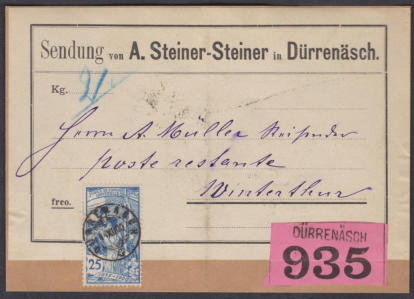 Sendung von A. Steiner-Steiner in Dürrenäsch.
Kg. 2/
Herrn A. Müller Reisender
poste restante
Winterthur
freo.
25
DÜRRENÄSCH
935